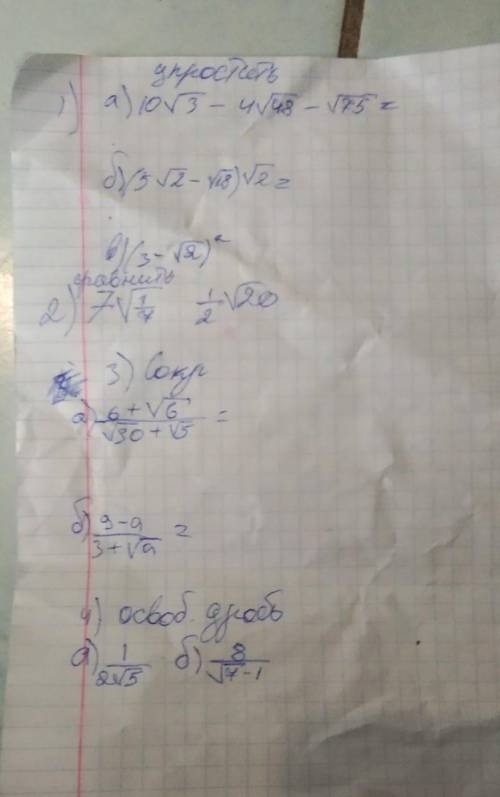 упростить
1) а) 10√3 - 4√48 - √75 =
б) (5√2 - √18)√2 =
в) (3 - √2)²
сравнить
2) 7√1/7   1/2√20
3) Сокр
а) (6 + √6)/(√30 + √5) =
б) (9-a)/(3+√a) =
4) освоб. дробь
а) 1/(2√5)   б) 8/(√7-1)